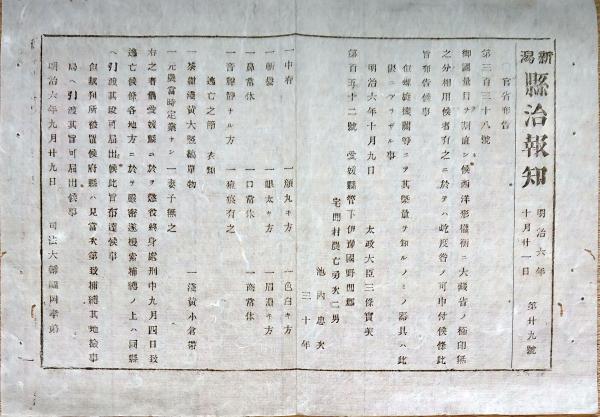 新潟縣治報知
明治六年
十月廿一日
第廿九號
官省布告
第三百三十八號
御國量目ヲ割直シ候西洋形權衡ニ大藏省ノ極印無
之分相用候者有之ニ於テハ屹度咎メ可申付候條此
旨布告候事
但螺旋機關等ニテ其槩量ヲ知ルノミノ器具ハ此
限ニアラザル事
明治六年十月九日
太政大臣三條實美
第百五十二號
愛媛縣管下伊豫國野間郡
宅間村農亡勇次二男
池内忠次
三十年
一中脊
一顔丸キ方
一色白キ方
一斬髮
一眼太キ方
一眉濃キ方
一鼻常体
一口常体
一齒常体
一音聲靜ナル方
一疱痕有之
逃亡之節
衣類
一茶紺淺黄大堅縞單物
一淺黄小倉帶
一元農當時定業ナシ
一妻子無之
右之者愛媛縣ニ於テ懲役終身處刑中九月四日致
逃亡候條各地方ニ於テ嚴密遂搜索捕縛ノ上ハ同縣
ヘ引渡其段可屆出候此旨布達候事
但裁判所被置候府縣ハ見當次第致捕縛其地檢事
局ヘ引渡其旨可屆出候事
明治六年九月廿九日
司法大輔福岡孝弟